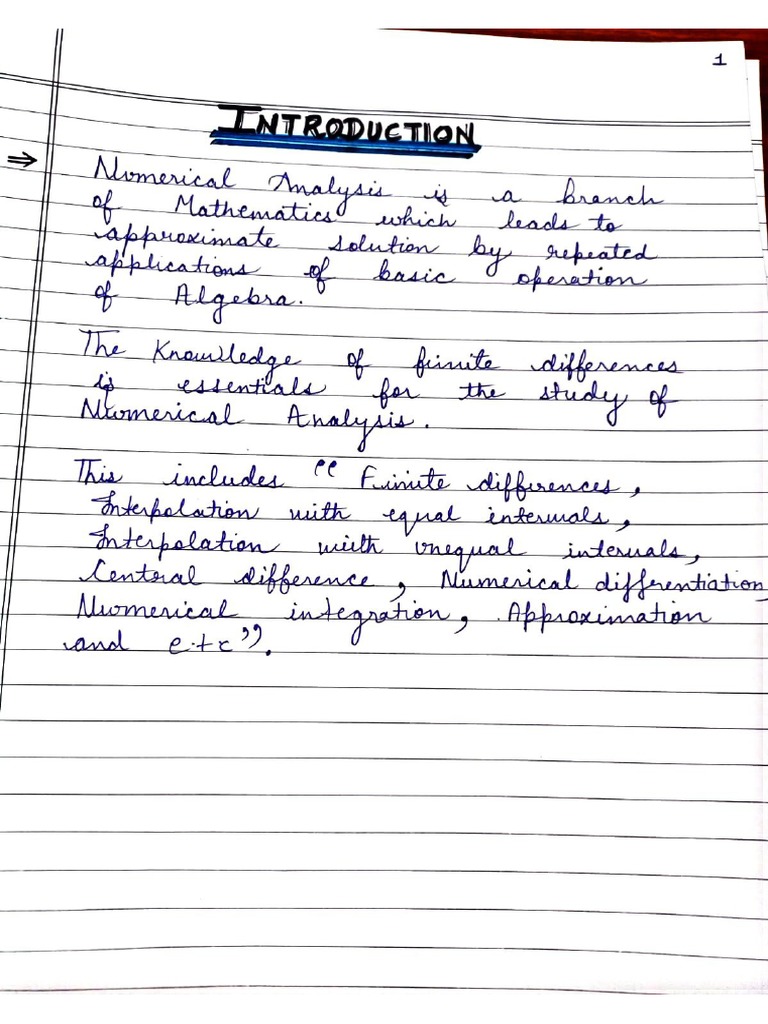 1
INTRODUCTION
⇒ Numerical Analysis is a branch
of Mathematics which leads to
approximate solution by repeated
applications of basic operation
of Algebra.
The Knowledge of finite differences
is essentials for the study of
Numerical Analysis.
This includes “ Finite differences,
Interpolation with equal intervals,
Interpolation with unequal intervals,
Central difference, Numerical differentiation,
Numerical integration, Approximation
and etc”.